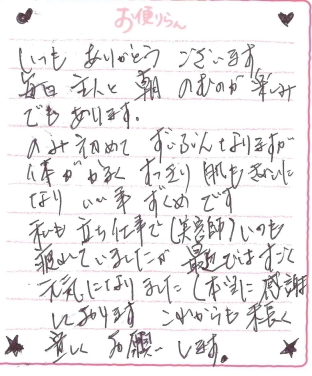 お便りらん
いつも ありがとう ございます。
毎日 主人と 朝 のむのが 楽しみ
でも あります。
のみ初めて ずいぶんなりますが
体が かるく すっきり 肌も きれいに
なり いい事 ずくめ です
私も 立ち仕事で(美容師)いつも
疲れていましたが 最近ではすごく
元気になりました 本当に 感謝
しております これからも 末長く
宜しく お願い します。